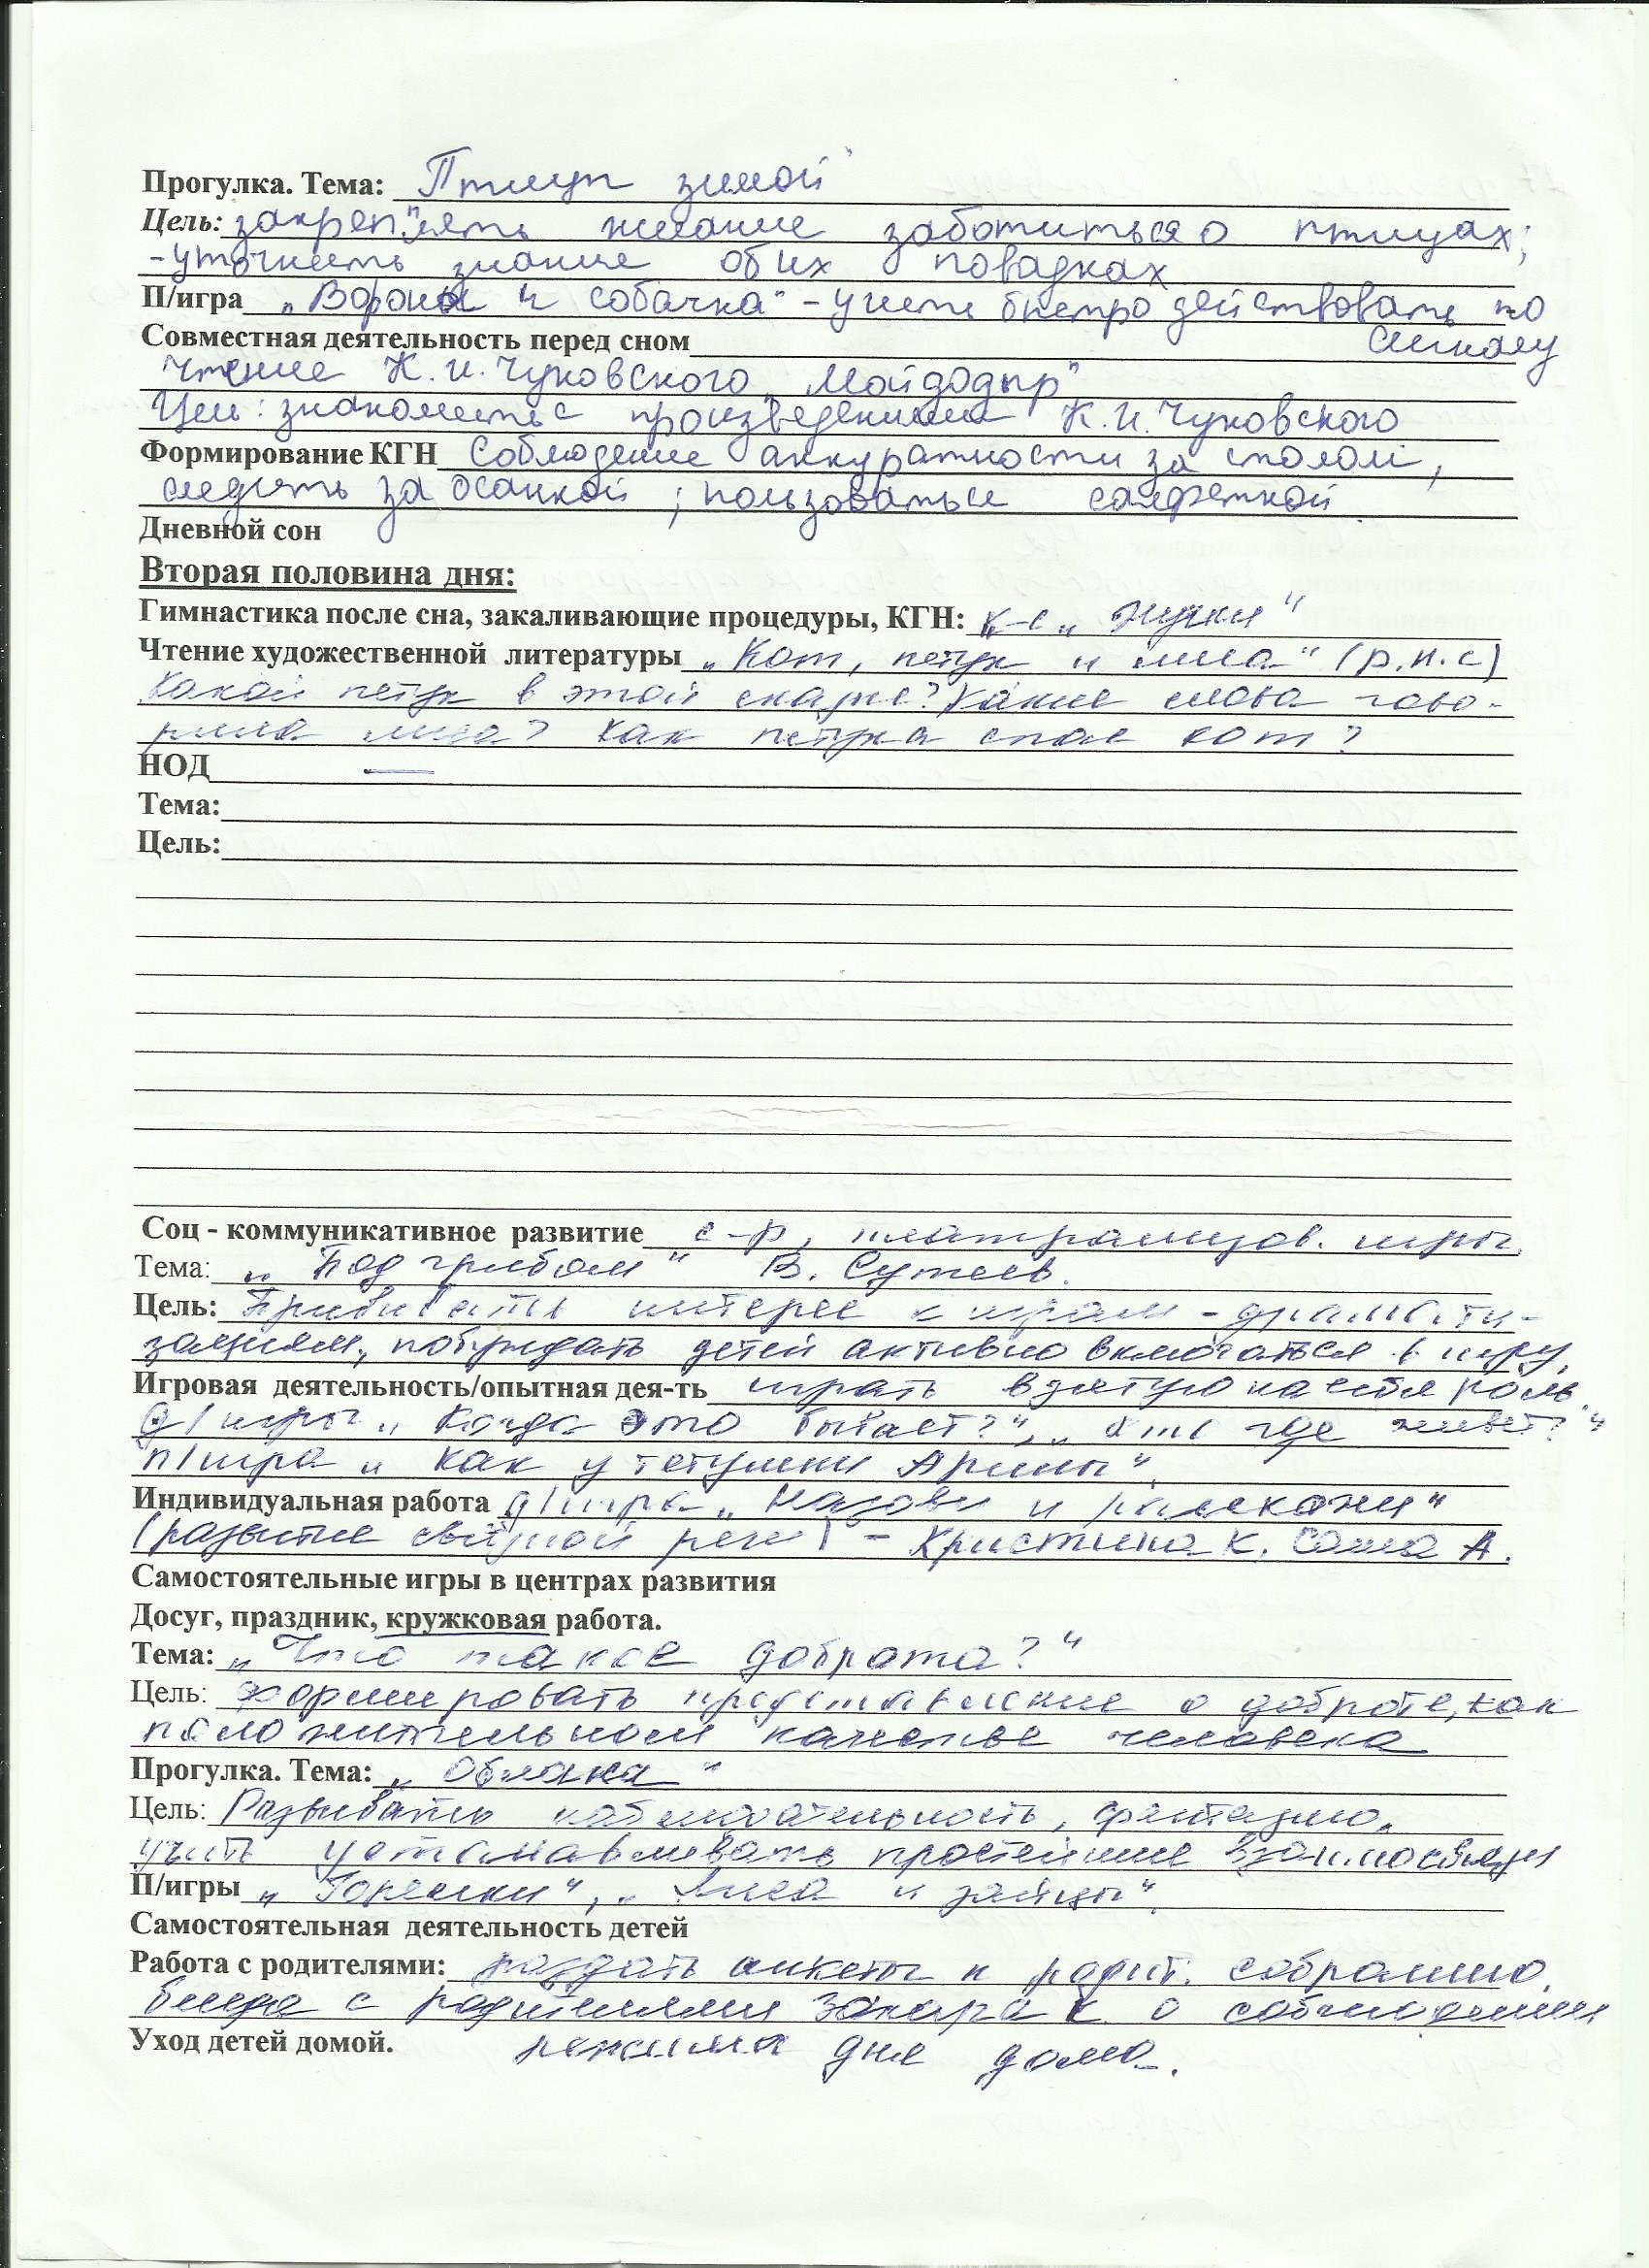 Прогулка. Тема: Птицы зимой
Цель: закреплять желание заботиться о птицах;
-уточнить знание об их повадках
П/игра „Вороны и собачка" - учить быстро действовать по
Совместная деятельность перед сном сигналу
Чтение К.И. Чуковского „Мойдодыр"
Цель: знакомить с произведениями К.И. Чуковского
Формирование КГН Соблюдение аккуратности за столом,
следить за осанкой; пользоваться салфеткой
Дневной сон
Вторая половина дня:
Гимнастика после сна, закаливающие процедуры, КГН: к-с „Жучки"
Чтение художественной литературы „Кот, петух и лиса" (р.н.с)
Какой петух в этой сказке? Какие слова гово-
рила лиса? Как петуха спас кот?
НОД —
Тема:
Цель:
Соц - коммуникативное развитие с-р, театрализов. игры
Тема: „Под грибом" В. Сутеев.
Цель: Прививать интерес к играм - драмати-
зациям, побуждать детей активно включаться в игру,
Игровая деятельность/опытная дея-ть играть взятую на себя роль.
д/игры „Когда это бывает?", „Кто где живет?"
п/игра „Как у тетушки Арины".
Индивидуальная работа д/игра „Назови и расскажи"
(развитие связной речи) - Кристина К. Саша А.
Самостоятельные игры в центрах развития
Досуг, праздник, кружковая работа.
Тема: „Что такое доброта?"
Цель: Формировать представление о доброте, как
положительном качестве человека
Прогулка. Тема: „Облака"
Цель: Развивать наблюдательность, фантазию.
учить устанавливать простейшие взаимосвязи
П/игры „Горелки", „Лиса и зайцы".
Самостоятельная деятельность детей
Работа с родителями: раздать анкеты к родит. собранию.
беседа с родителями Захара К. о соблюдении
Уход детей домой. режима дня дома.